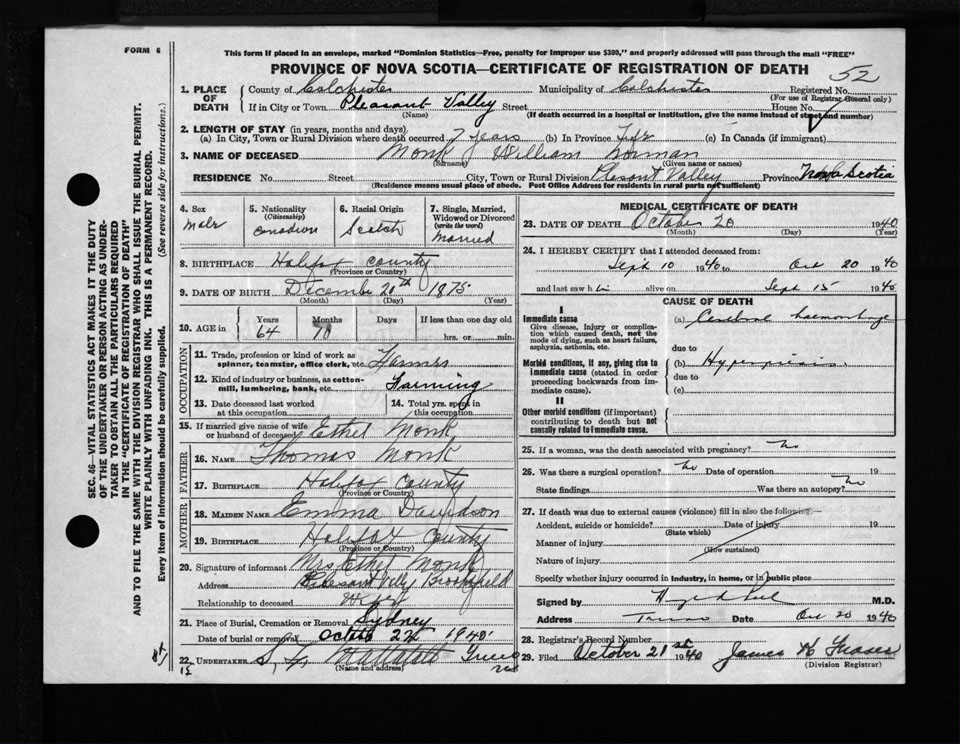 FORM 6
This form if placed in an envelope, marked "Dominion Statistics—Free, penalty for improper use $300," and properly addressed will pass through the mail "FREE"
PROVINCE OF NOVA SCOTIA—CERTIFICATE OF REGISTRATION OF DEATH
52
1. PLACE OF DEATH
County of Colchester Municipality of Colchester Registered No.
(For use of Registrar General only)
If in City or Town Pleasant Valley Street House No.
(Name) (If death occurred in a hospital or institution, give name instead of street and number)
2. LENGTH OF STAY (in years, months and days).
(a) In City, Town or Rural Division where death occurred 7 years (b) In Province Life (c) In Canada (if immigrant)
3. NAME OF DECEASED Monk William Norman
(Surname) (Given name or names)
RESIDENCE No. Street City, Town or Rural Division Plesant Valley Province Nova Scotia
(Residence means usual place of abode. Post Office Address for residents in rural parts not sufficient)
4. Sex Male
5. Nationality (Citizenship) Canadian
6. Racial Origin Scotch
7. Single, Married, Widowed or Divorced (write the word) Married
8. BIRTHPLACE Halifax County
(Province or Country)
9. DATE OF BIRTH December 20th 1875
(Month) (Day) (Year)
10. AGE in Years Months Days If less than one day old
64 10 hrs. or min.
OCCUPATION
11. Trade, profession or kind of work as spinner, teamster, office clerk, etc. Farmer
12. Kind of industry or business, as cotton-mill, lumbering, bank, etc. Farming
13. Date deceased last worked at this occupation
14. Total yrs. spent in this occupation
15. If married give name of wife or husband of deceased Ethel Monk
FATHER
16. NAME Thomas Monk
17. BIRTHPLACE Halifax County
(Province or Country)
MOTHER
18. MAIDEN NAME Emma Davidson
19. BIRTHPLACE Halifax County
(Province or Country)
20. Signature of informant Mrs Ethel Monk
Address Plesant Vally Brookfield
Relationship to deceased Wife
21. Place of Burial, Cremation or Removal Sydney
Date of burial or removal 1940
22. UNDERTAKER Mattatall Truro
(Name and address)
MEDICAL CERTIFICATE OF DEATH
23. DATE OF DEATH October 20 1940
(Month) (Day) (Year)
24. I HEREBY CERTIFY that I attended deceased from:
Sept 10 1940 to Oct 20 1940
and last saw h alive on Sept 15 1940
CAUSE OF DEATH
I
Immediate cause
Give disease, injury or complication which caused death, not the mode of dying, such as heart failure, asphyxia, asthenia, etc.
(a) Cerebral haemorrhage
due to
Morbid conditions, if any, giving rise to immediate cause (stated in order proceeding backwards from immediate cause).
(b)
due to
(c)
II
Other morbid conditions (if important) contributing to death but not causally related to immediate cause.
25. If a woman, was the death associated with pregnancy? no
26. Was there a surgical operation? no Date of operation 19
State findings Was there an autopsy? no
27. If death was due to external causes (violence) fill in also the following—
Accident, suicide or homicide? Date of injury 19
(State which)
Manner of injury
(How sustained)
Nature of injury
Specify whether injury occurred in industry, in home, or in public place
Signed by M.D.
Address Truro Date Oct 20 1940
28. Registrar's Record Number
29. Filed October 21st 1940 James H Fraser
(Division Registrar)
SEC. 46—VITAL STATISTICS ACT MAKES IT THE DUTY
OF THE UNDERTAKER OR PERSON ACTING AS UNDER-
TAKER TO OBTAIN ALL THE PARTICULARS REQUIRED
IN THE "CERTIFICATE OF REGISTRATION OF DEATH"
AND TO FILE THE SAME WITH THE DIVISION REGISTRAR WHO SHALL ISSUE THE BURIAL PERMIT.
WRITE PLAINLY WITH UNFADING INK. THIS IS A PERMANENT RECORD.
Every item of information should be carefully supplied. (See reverse side for instructions.)